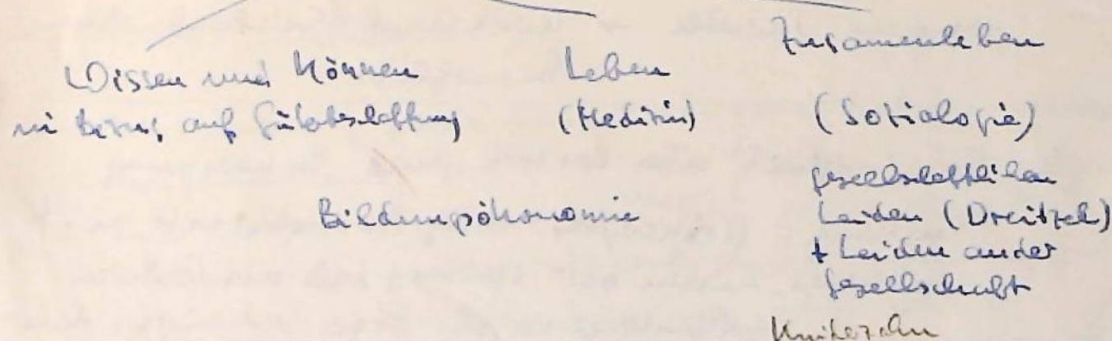 Wissen und Können
in Bezug auf
Leben
(Medizin)
Zusamenleben
(Soziologie)
Bildungsökonomie
gesellschaftlichen
Leiden (Dreitzel)
+ Leiden an der
Gesellschaft